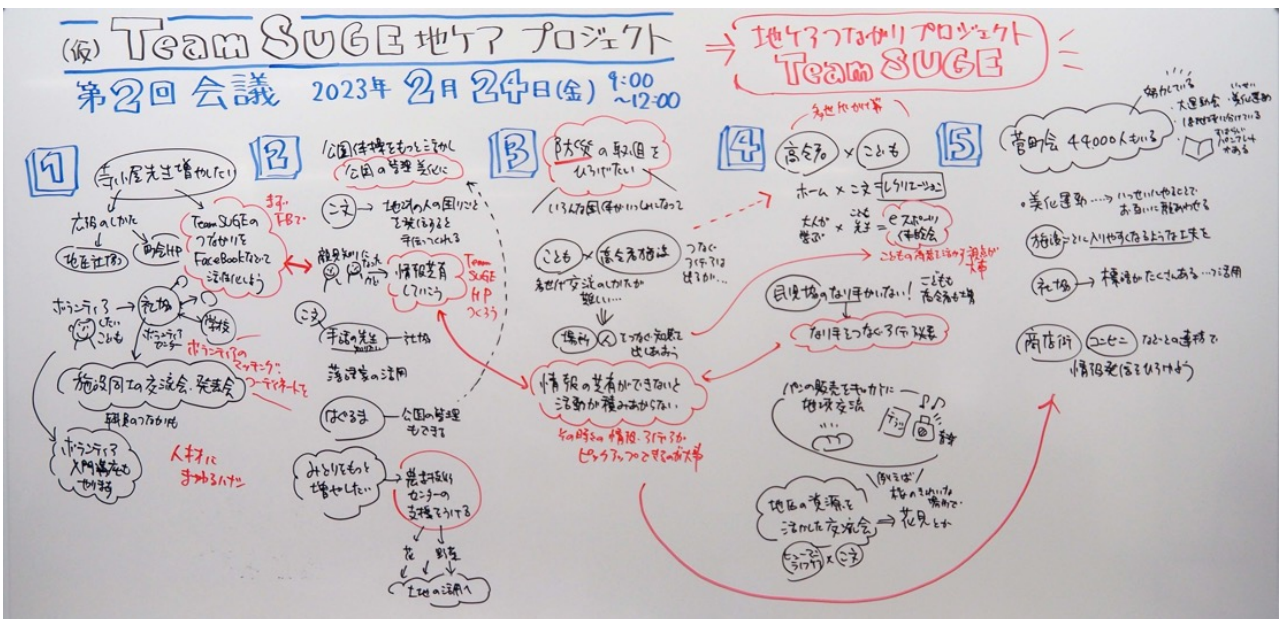 (仮) Team SUGE 地ケア プロジェクト
⇒ 地ケアつながりプロジェクト
Team SUGE
第2回 会議 2023年 2月 24日(金) 9:00
〜12:00
1
寺小屋先生増やしたい
広報のしかた
町会HP
まず
FBで
Team SUGEの
つながりを
FaceBookなどで
活性化しよう
ボランティア
したい
こども
社協
ボランティア
センター
学校
ボランティアの
マッチング
コーディネートを
施設同士の交流会、発表会
職員のつながりも
ボランティア
入門講座も
やります
人材に
まつわるハナシ
2
公園体操をもっと活かし
公園の管理 美化に
こ文
地域の人の困りごと
手伝ってくれる
顔見知りに
情報共有
していこう
Team
SUGE
HP
つくろう
こ文
手話の先生
社協
はぐるま
公園の管理
もできる
みどりをもっと
増やしたい
農業技術
センターの
支援をうける
花 野菜
土地の活用へ
3
防災の取組を
ひろげたい
いろんな団体がいっしょになって
こども × 高齢者施設
つなぐ
アイデアは
出るが…
多世代交流のしかたが
難しい…
場所 人 をつなぐ知恵を
出しあおう
情報の共有ができないと
活動が積みあがらない
その時々の情報・アイデアが
ピックアップできるのが大事
4
多世代が
高令者 × こども
ホーム × こ文 = レクリエーション
大人が
学ぶ × こども
先生 = eスポーツ
体験会
こどもの
視点が
大事
民児協のなり手がいない!
こどもも
高令者も
なり手をつなぐアイデア必要
パンの販売をキッカケに
地域交流
チラシ
音楽
地区の資源を
活かした交流会
例えば
桜のきれいな
場所で
⇒ 花見とか
ヒューマン
ライフケア × こ文
5
努力している
・大運動会・美化運動
すばらしい
パンフレット
がある
菅町会 44000人もいる
・美化運動…→いっせいにやることで
お互いに顔あわせる
施設ごとに入りやすくなるような工夫を
社協 → 機材がたくさんある…→活用
商店街 コンビニ などとの連携で
情報発信をひろげよう